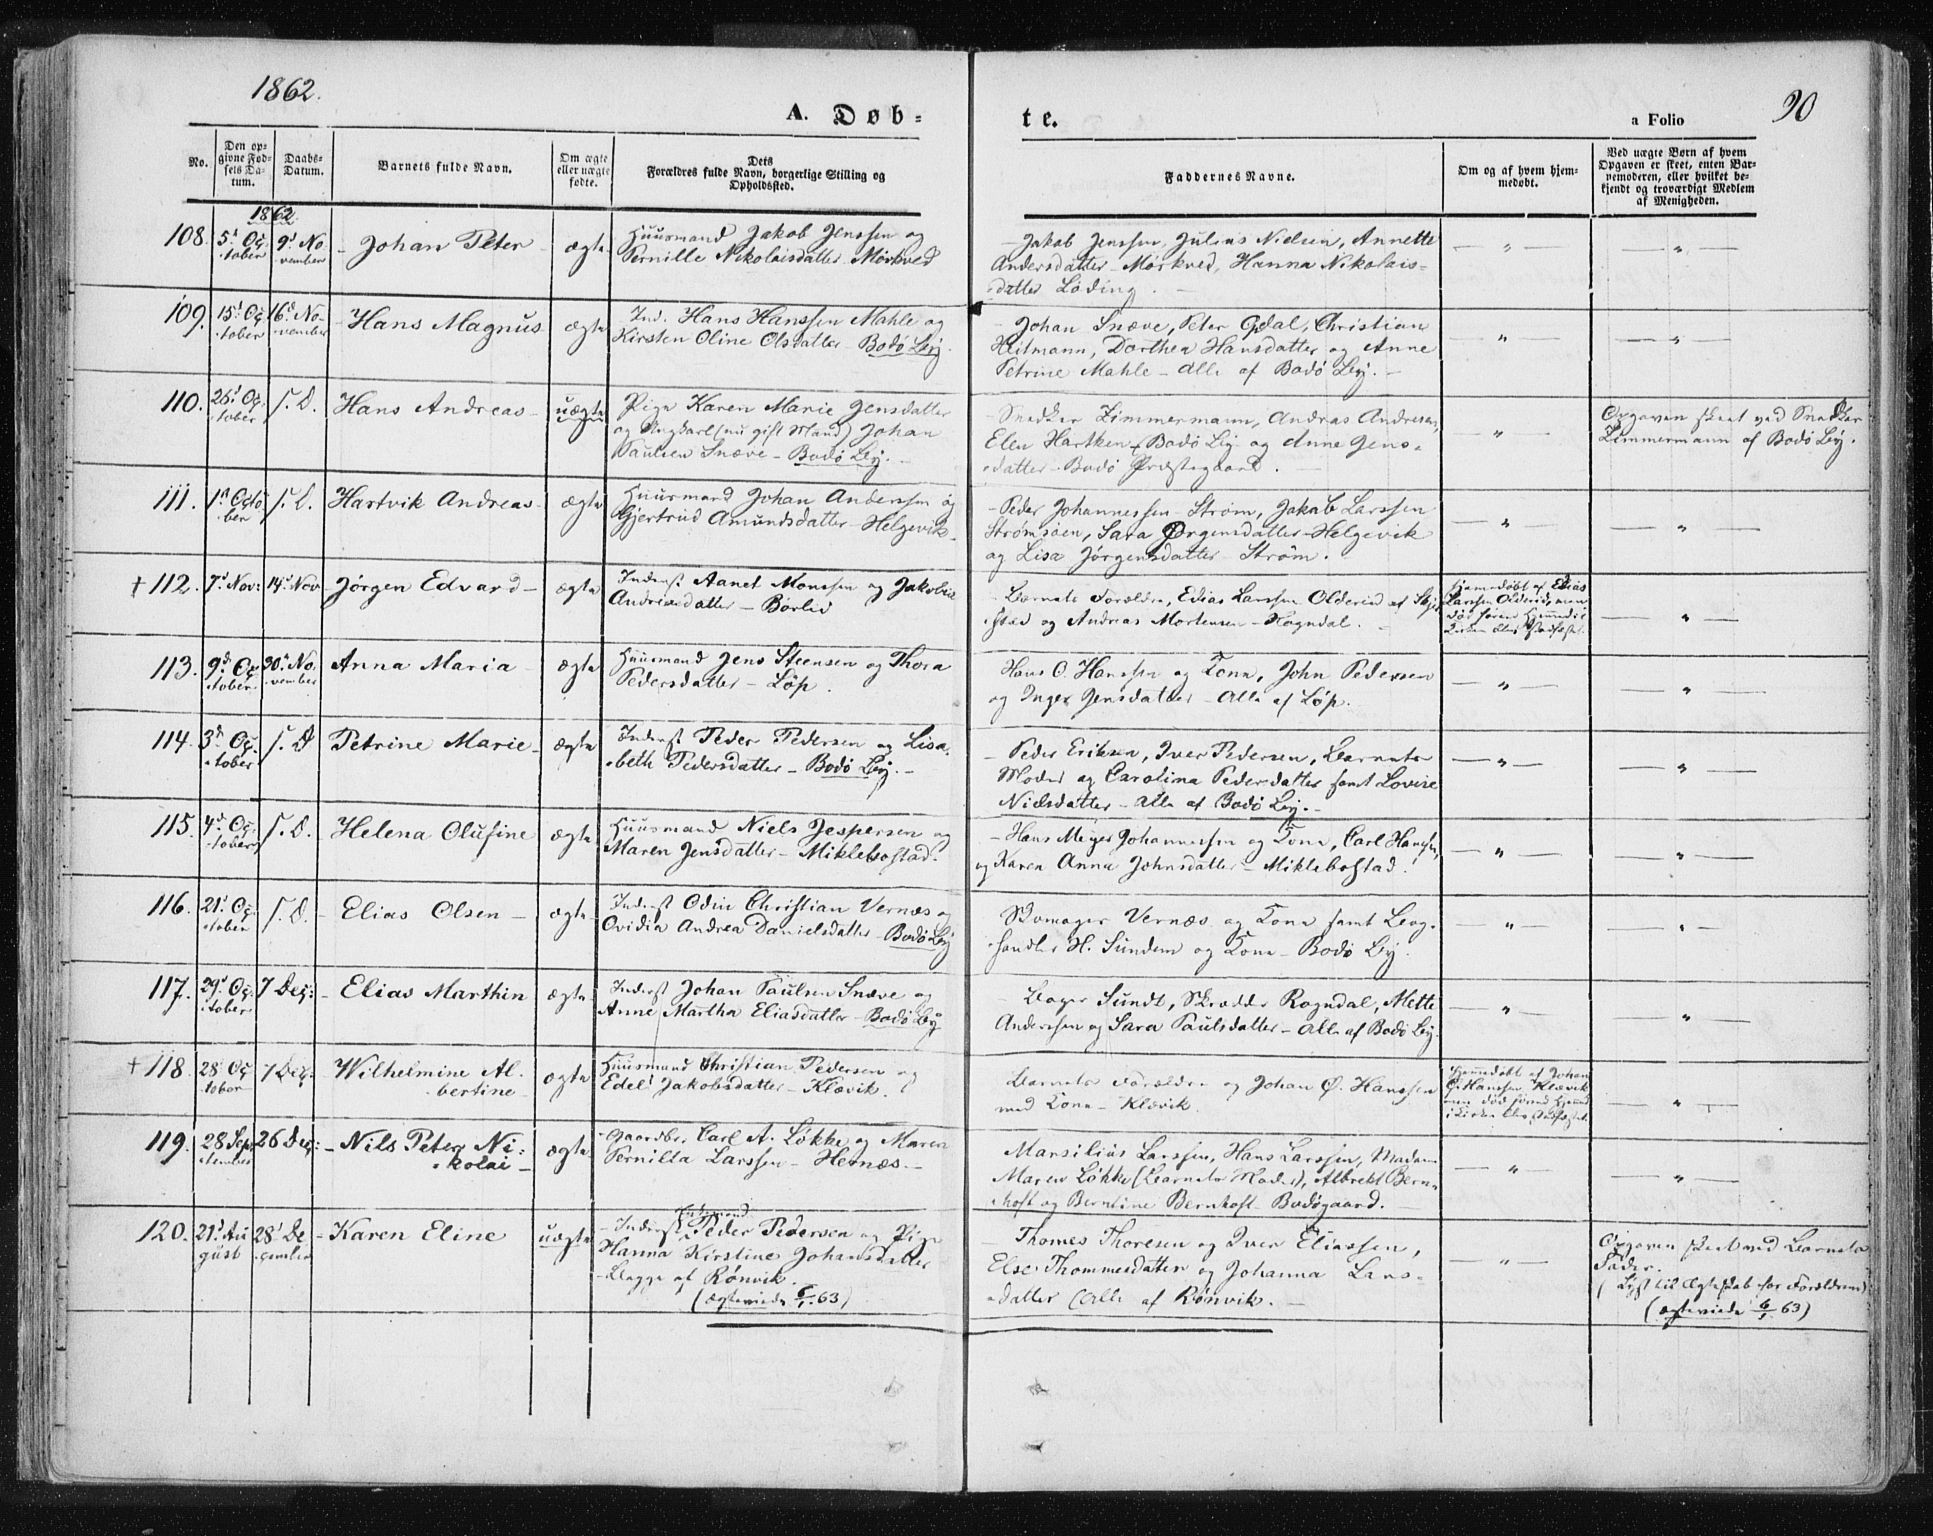 1862.
A. Døb-
te.
a Folio
90
No.
Den op-
givne Fød-
sels Da-
tum.
Daabs-
Datum.
Barnets fulde Navn.
Om ægte
eller uægte
fødte.
Dets
Forældres fulde Navn, borgerlige Stilling og
Opholdssted.
Faddernes Navne.
Om og af hvem hjem-
medøbt.
Ved uægte Børn af hvem
Opgaven er skeet, enten Bar-
nemoderen, eller hvilket be-
kjendt og troværdigt Medlem
af Menigheden.
1862
108.
5' Oc-
tober
9' No-
vember
- Johan Peter -
ægte
Huusmand Jakob Jenssen og
Pernille Nikolaisdatter Mørkved
- Jakob Jenssen, Julius Nielsen, Annette
Andersdatter - Mørkved, Hanna Nikolais-
datter Løding. -
— " —
— " —
109.
15' Oc-
tober
16' No-
vember
- Hans Magnus
ægte
Ind. Hans Hanssen Mahle og
Kirsten Oline Olsdatter - Bodø By.
- Johan Snæve, Peter Opdal, Christian
Heitmann, Dorthea Hansdatter og Anne
Petrine Mahle - alle af Bodø By. -
— " —
— " —
110.
26' Oc-
tober
S. D.
Hans Andreas -
uægte
Pige Karen Marie Jensdatter
og Ungkarl (nu gift Mand) Johan
Paulsen Snæve - Bodø By. -
- Snedker Zimmermann, Andras Andresen,
Elen Hartken - Bodø By og Anne Jens-
datter - Bodø Præstegaard. -
— " —
Opgaven skeet ved Snedker
Zimmermann af Bodø By.
111.
1' Octo-
ber
S. D.
Hartvik Andreas -
ægte
Huusmand Johan Andersen og
Gjertrud Amundsdatter - Helgevik -
- Peder Johannessen - Strøm, Jakob Larssen
Strømsøen, Sara Jørgensdatter - Helgevik
og Lisa Jörgensdatter Strøm.
— " —
— " —
+ 112.
7' Nov:
14' Nov
Jörgen Edvard -
ægte
Inderst Aanet Monssen og Jakobie
Andreasdatter - Børlid
- Barnets Forældre, Edias Larssen Olderied af Skjer-
stad og Andreas Mortensen - Høgndal. -
Hjemmedøbt af Edias
Larssen Olderied, men
død førend Hjemmed. i
Kirken blev stadfæstet.
— " —
113.
9d Oc-
tober
30' No-
vember
Anna Maria -
ægte
Huusmand Jens Steensen og Thora
Pedersdatter - Løp.
Hans O. Hanssen og Kone, John Pedersen
og Inger Jensdatter - Alle af Løp.
— " —
— " —
114.
3d Oc-
tober
S. D
Petrine Marie -
ægte
Inderst Peder Pedersen og Lisa-
beth Pedersdatter - Bodø By. -
- Peder Eriksen, Iver Pedersen, Barnets
Moder og Carolina Pedersdatter samt Lovise
Nielsdatter - Alle af Bodø By. -
— " —
— " —
115.
4d Oc-
tober
S. D.
Helena Olufine
ægte
Huusmand Niels Jespersen og
Maren Jensdatter - Miklebostad.
- Hans Meyer Johannessen og Kone, Carl Hanssen,
og Karen Anna Johnsdatter - Miklebostad.
— " —
— " —
116.
21' Oc-
tober
S. D.
- Elias Olsen -
ægte
Inderst Odin Christian Vernæs og
Ovidia Andrea Danielsdatter - Bodø By
Skomager Vernæs og Kone samt Bog-
handler H. Sundem og Kone - Bodø By.
— " —
— " —
117.
29' Oc-
tober
7 Dec:
- Elias Marthin
ægte
Inderst Johan Paulsen Snæve og
Anne Martha Eliasdatter - Bodø By
- Bager Sundt, Skrædder Rogndal, Mette
Anderssen og Sara Paulsdatter - Alle af Bodø By.
— " —
— " —
+ 118.
28' Oc-
tober
7 Dec:
- Wilhelmine Al-
bertine -
ægte
Huusmand Christian Pedersen og
Edel Jakobsdatter - Klævik.
Barnets Forældre og Johan Ø. Hanssen
med Kone - Klævik.
Hjemmedøbt af Johan
Ø. Hanssen Klævik
men død førend Hjemmd.
i Kirken blev stadfæstet.
— " —
119.
28 Sep-
tember
26 Dec:
- Nils Peter Ni-
kolai -
ægte
- Gaardbr. Carl A. Løkke og Maren
Pernilla Larssen - Hernæs. -
Marsilius Larssen, Hans Larssen, Madam
Maren Løkke (Barnets Moder), Albrekt Bern-
hoft og Berntine Bernhoft - Bodøgaard.
— " —
— " —
120.
21' Au-
gust
28' De-
cember
- Karen Eline
uægte
- Inderst Peder Pedersen og Pige
Hanna Kirstine Johansdatter
- Begge af Rønvik.
(ægteviede 6/1. 63)
- Thomes Thoresen og Iver Eliassen,
Else Thommesdatter og Johanna Lars-
datter (Alle af Rønvik. -
— " —
Opgaven skeet ved Barnets
Fader.
(Lyst til Ægteskab for Forældrene)
(ægteviede 6/1 63)